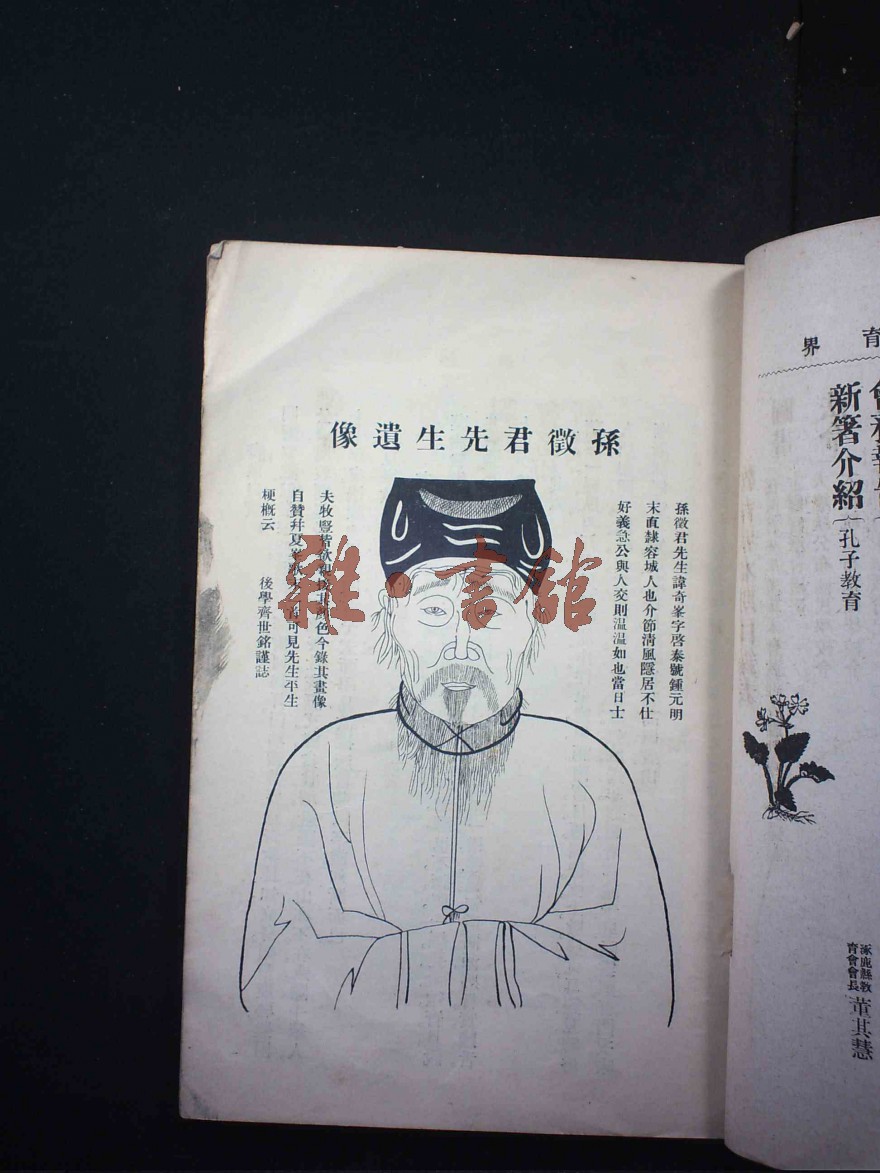 孫徵君先生遺像
孫徵君先生諱奇峯字啓泰號鍾元明
末直隸容城人也介節清風隱居不仕
好義急公與人交則溫溫如也當日士
夫牧豎皆色今錄其畫像
自贊幷夏可見先生平生
梗概云 後學齊世銘謹誌
雜·書館
育界
新箸介紹
孔子教育
涿鹿縣教
育會會長
董其慧